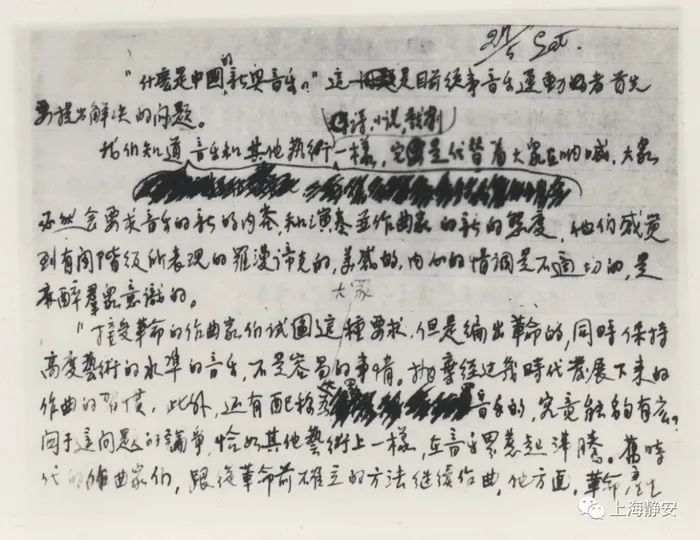 27/5 Sat.
"什麽是中國的新興音乐?" 這是目前從事音乐運動的者首先
要提出解决的问题。
如詩,小説,戯劇
我们知道音乐和其他藝術一樣,它是代替着大家在呐喊,大家
必然会要求音乐的新的内容和演奏並作曲家的新的態度,他们感觉
到有閒階级所表现的羅漫諦克的,美感的,内心的情調是不適切的,是
麻醉羣衆意識的。
大眾
"接受革命的作曲家们试圖這種要求,但是编出革命的,同時保持
高度藝術的水準的音乐,不是容易的事情。抛棄经过幾時代發展下来的
作曲的習慣,此外,还有配称音乐的,究竟能夠有否?
関于這问题的論争,恰如其他藝術上一樣,在音乐界惹起沸騰。舊時
代的作曲家们,跟從革命前確立的方法继续作曲,他方面,革命產生
上海静安